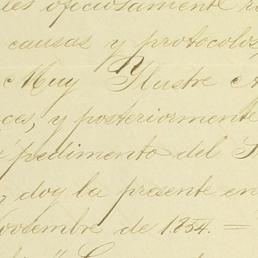 les oficiosamente
causas y protocolos,
Muy Ilustre
cas, y posteriormente
pedimento del
, doy la presente en
Noviembre de 1854. =